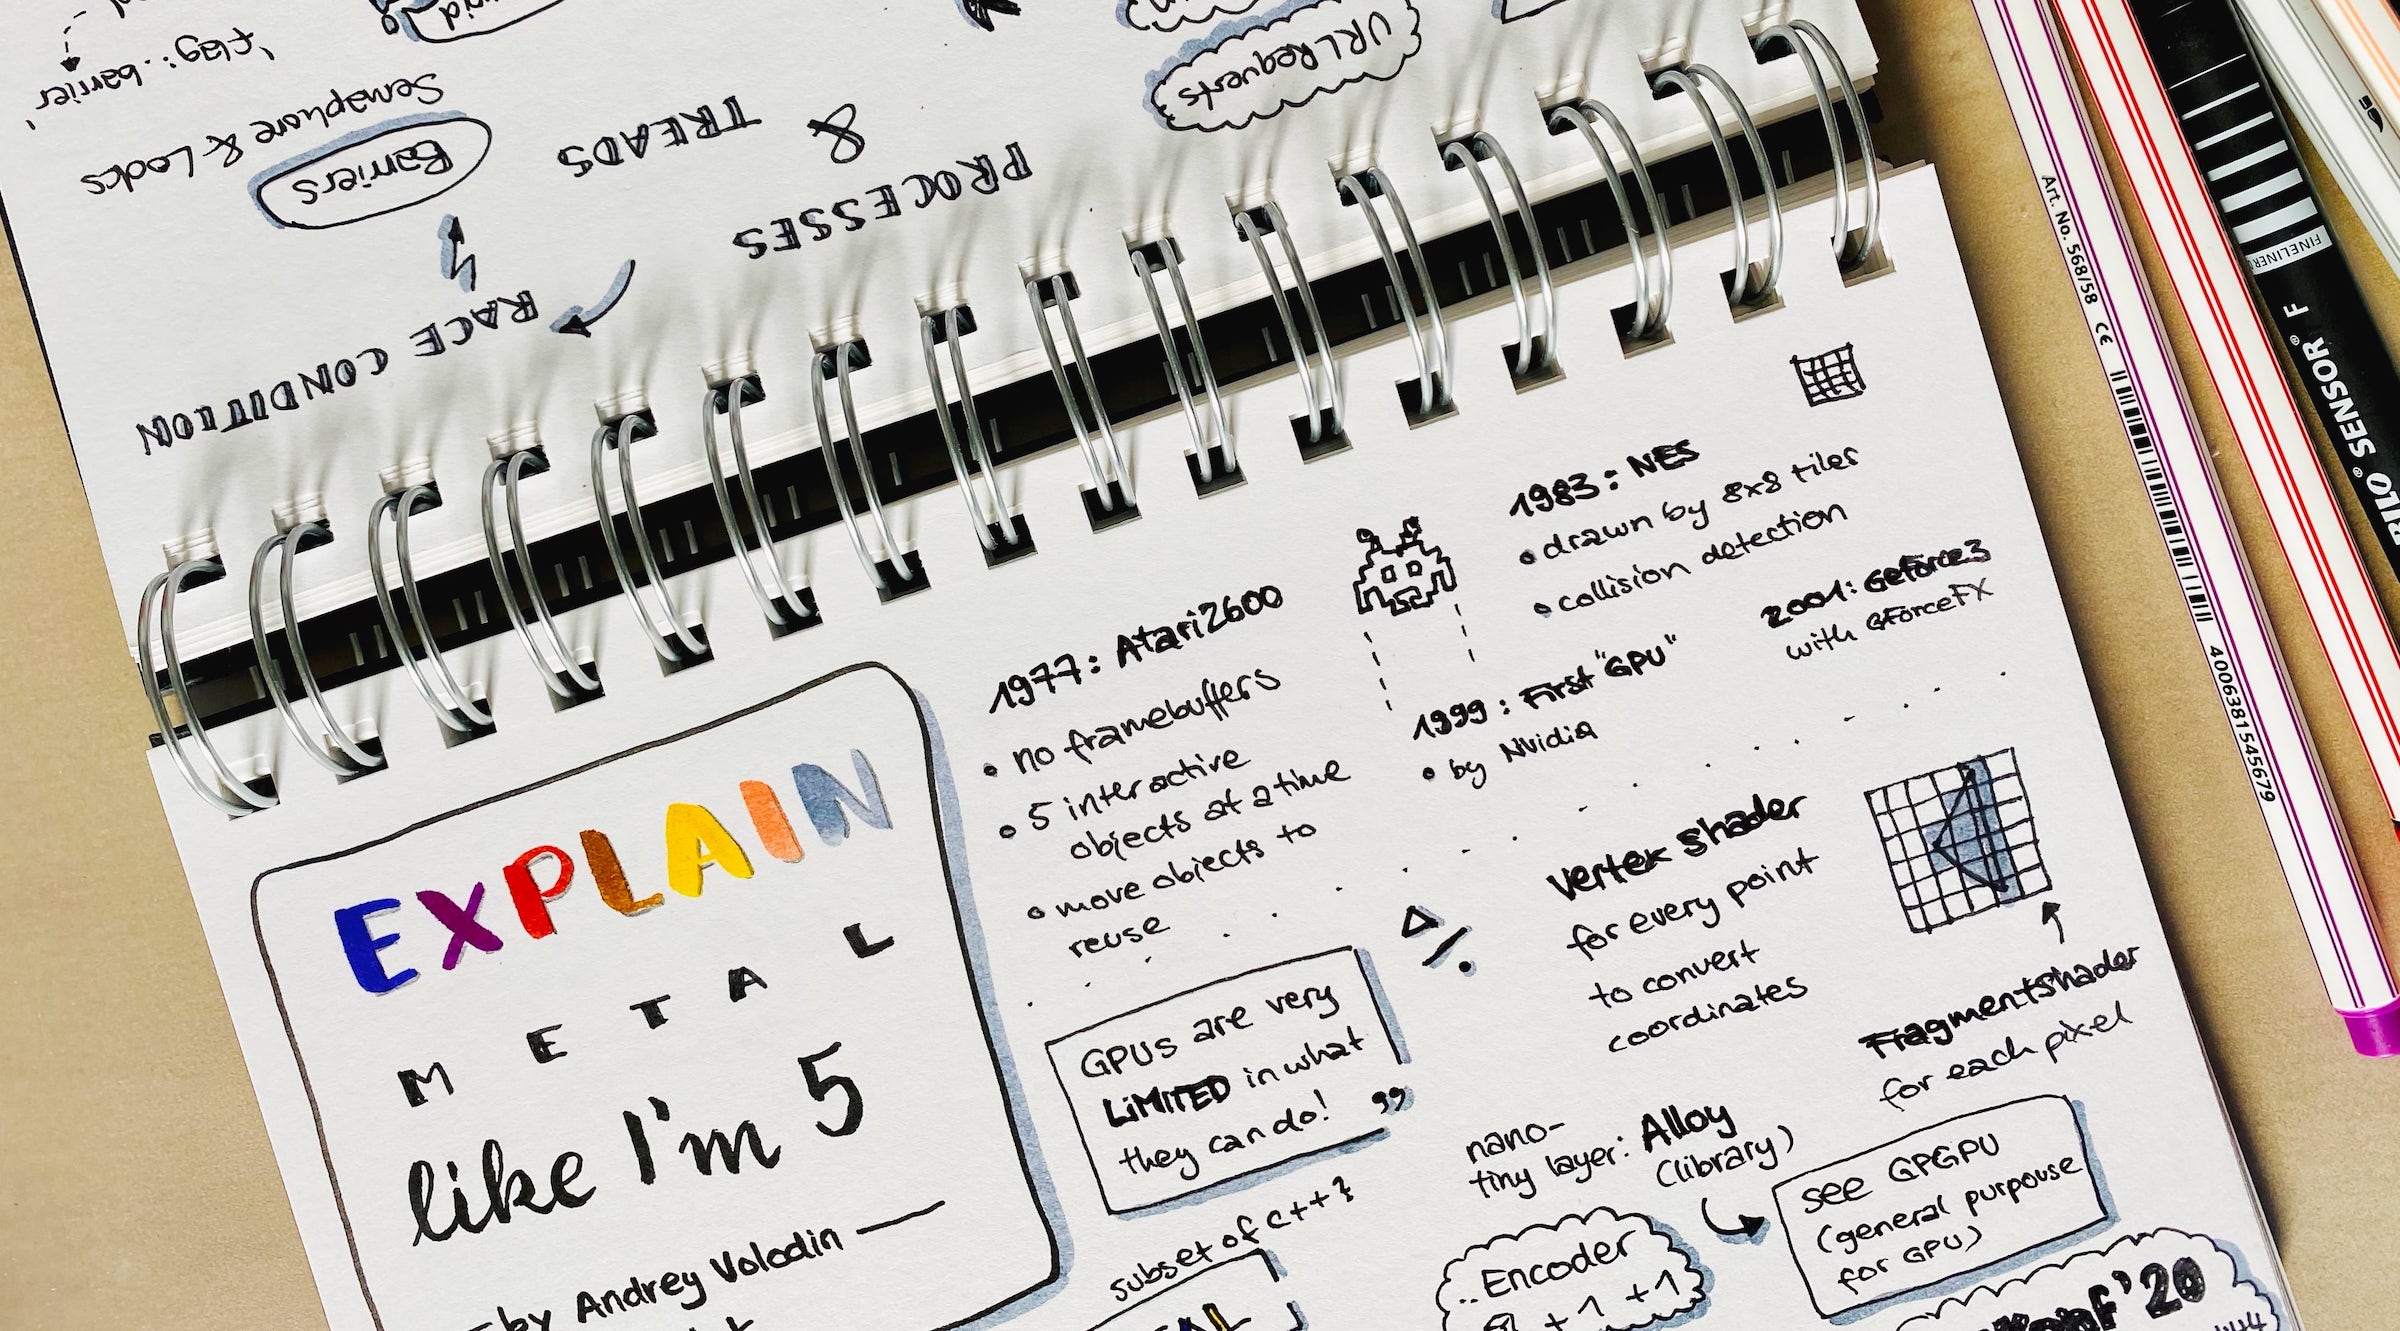 RACE CONDITION
PROCESSES
& TREADS
Barriers
Semaphore & Locks
'flag: .barrier'
URLRequests
EXPLAIN
METAL
like I'm 5
by Andrey Volodin
1977: Atari2600
• no framebuffers
• 5 interactive
objects at a time
• move objects to
reuse
1983: NES
• drawn by 8x8 tiles
• collision detection
1999: First "GPU"
• by NVidia
2001: GeForce3
with GForceFX
GPUs are very
LiMiTED in what
they can do!
"
Vertex Shader
for every point
to convert
coordinates
Fragmentshader
for each pixel
nano-
tiny layer: Alloy
(library)
see GPGPU
(general purpouse
for GPU)
subset of C++
..Encoder
+1 +1
'20
Art. No. 568/58 CE
4006381545679
FINELINER
SENSOR® F